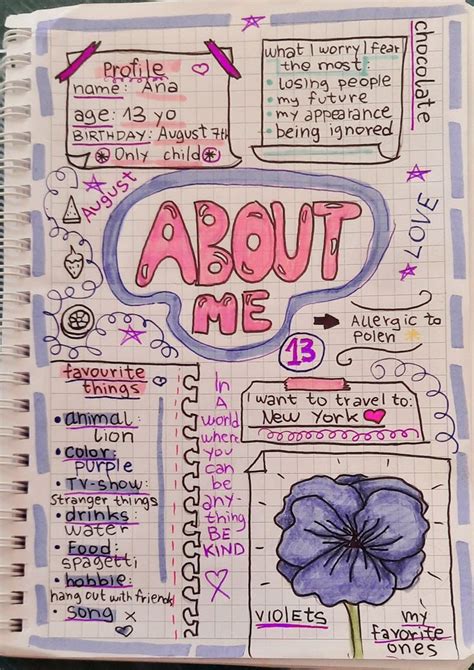 Profile
name: Ana
age: 13 yo
BIRTHDAY: August 7th
Only child
what I worry/fear
the most:
• losing people
• my future
• my appearance
• being ignored
chocolate
August
ABOUT
ME
LOVE
13
Allergic to
polen
favourite
things
• animal:
lion
• color:
purple
• TV-show:
Stranger things
• drinks:
water
• Food:
spagetti
• hobbie:
hang out with friends
• song x
In
A
world
where
you
can
be
any-
thing
BE
KIND
I want to travel to:
New York
violets
my
favorite
ones